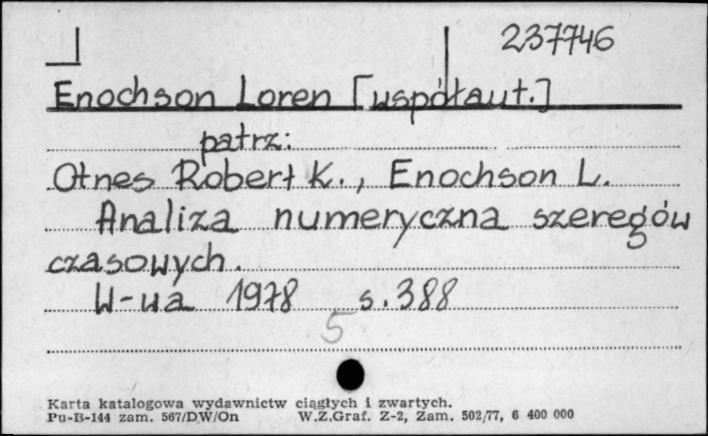 237746
Enochson Loren [współaut.]
patrz:
Otnes Robert K., Enochson L.
Analiza numeryczna szeregów
czasowych.
W-wa 1978 s. 388
5
Karta katalogowa wydawnictw ciągłych i zwartych.
Pu-B-144 zam. 567/DW/On W.Z.Graf. Z-2, Zam. 502/77, 6 400 000